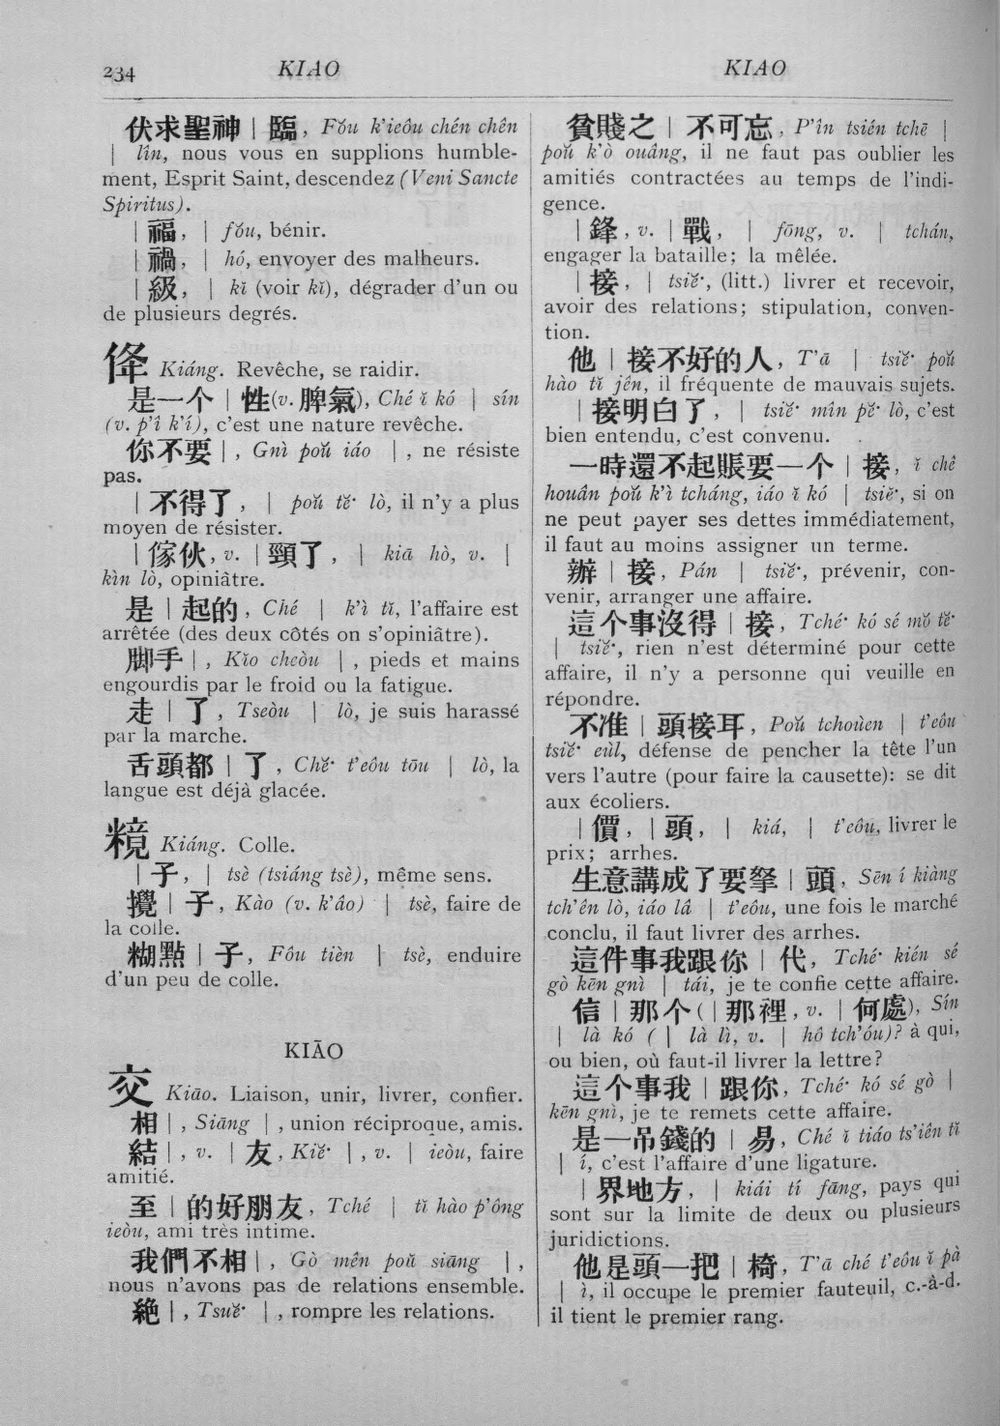 234
KIAO
KIAO
伏求聖神 | 臨, Foŭ k'ieôu chén chên
| lîn, nous vous en supplions humble-
ment, Esprit Saint, descendez (Veni Sancte
Spiritus).
| 福, | foŭ, bénir.
| 禍, | hó, envoyer des malheurs.
| 級, | kĭ (voir kĭ), dégrader d'un ou
de plusieurs degrés.
夅 Kiáng. Revêche, se raidir.
是一个 | 性(v. 脾氣), Ché ĭ kó | sín
(v. p'î k'í), c'est une nature revêche.
你不要 | , Gnì poŭ iáo | , ne résiste
pas.
| 不得了, | poŭ tĕ· lò, il n'y a plus
moyen de résister.
| 傢伙, v. | 頸了, | kiā hò, v. |
kìn lò, opiniâtre.
是 | 起的, Ché | k'ì tĭ, l'affaire est
arrêtée (des deux côtés on s'opiniâtre).
脚手 | , Kĭo cheòu | , pieds et mains
engourdis par le froid ou la fatigue.
走 | 了, Tseòu | lò, je suis harassé
par la marche.
舌頭都 | 了, Chĕ· t'eôu tōu | lò, la
langue est déjà glacée.
糡 Kiáng. Colle.
| 子, | tsè (tsiáng tsè), même sens.
攪 | 子, Kào (v. k'áo) | tsè, faire de
la colle.
糊點 | 子, Foû tièn | tsè, enduire
d'un peu de colle.
KIĀO
交 Kiāo. Liaison, unir, livrer, confier.
相 | , Siāng | , union réciproque, amis.
結 | , v. | 友, Kiĕ· | , v. | ieòu, faire
amitié.
至 | 的好朋友, Tché | tĭ hào p'ông
ieòu, ami très intime.
我們不相 | , Gò mên poŭ siāng | ,
nous n'avons pas de relations ensemble.
絕 | , Tsuĕ· | , rompre les relations.
貧賤之 | 不可忘, P'în tsién tchē |
poŭ k'ò ouâng, il ne faut pas oublier les
amitiés contractées au temps de l'indi-
gence.
| 鋒, v. | 戰, | fōng, v. | tchán,
engager la bataille; la mêlée.
| 接, | tsiĕ·, (litt.) livrer et recevoir,
avoir des relations; stipulation, conven-
tion.
他 | 接不好的人, T'ā | tsiĕ· poŭ
hào tĭ jên, il fréquente de mauvais sujets.
| 接明白了, | tsiĕ· mîn pĕ· lò, c'est
bien entendu, c'est convenu.
一時還不起賬要一个 | 接, ĭ chê
houân poŭ k'ì tcháng, iáo ĭ kó | tsiĕ·, si on
ne peut payer ses dettes immédiatement,
il faut au moins assigner un terme.
辦 | 接, Pán | tsiĕ·, prévenir, con-
venir, arranger une affaire.
這个事沒得 | 接, Tché· kó sé mŏ tĕ·
| tsiĕ·, rien n'est déterminé pour cette
affaire, il n'y a personne qui veuille en
répondre.
不准 | 頭接耳, Poŭ tchoùen | t'eôu
tsiĕ· eùl, défense de pencher la tête l'un
vers l'autre (pour faire la causette): se dit
aux écoliers.
| 價, | 頭, | kiá, | t'eôu, livrer le
prix; arrhes.
生意講成了要拏 | 頭, Sēn í kiàng
tch'ên lò, iáo lâ | t'eôu, une fois le marché
conclu, il faut livrer des arrhes.
這件事我跟你 | 代, Tché· kién sé
gò kēn gnì | tái, je te confie cette affaire.
信 | 那个 ( | 那裡, v. | 何處), Sín
| là kó ( | là lì, v. | hô tch'óu)? à qui,
ou bien, où faut-il livrer la lettre?
這个事我 | 跟你, Tché· kó sé gò |
kēn gnì, je te remets cette affaire.
是一吊錢的 | 易, Ché ĭ tiáo ts'iên tĭ
| í, c'est l'affaire d'une ligature.
| 界地方, | kiái tí fāng, pays qui
sont sur la limite de deux ou plusieurs
juridictions.
他是頭一把 | 椅, T'ā ché t'eôu ĭ pà
| ì, il occupe le premier fauteuil, c.-à-d.
il tient le premier rang.